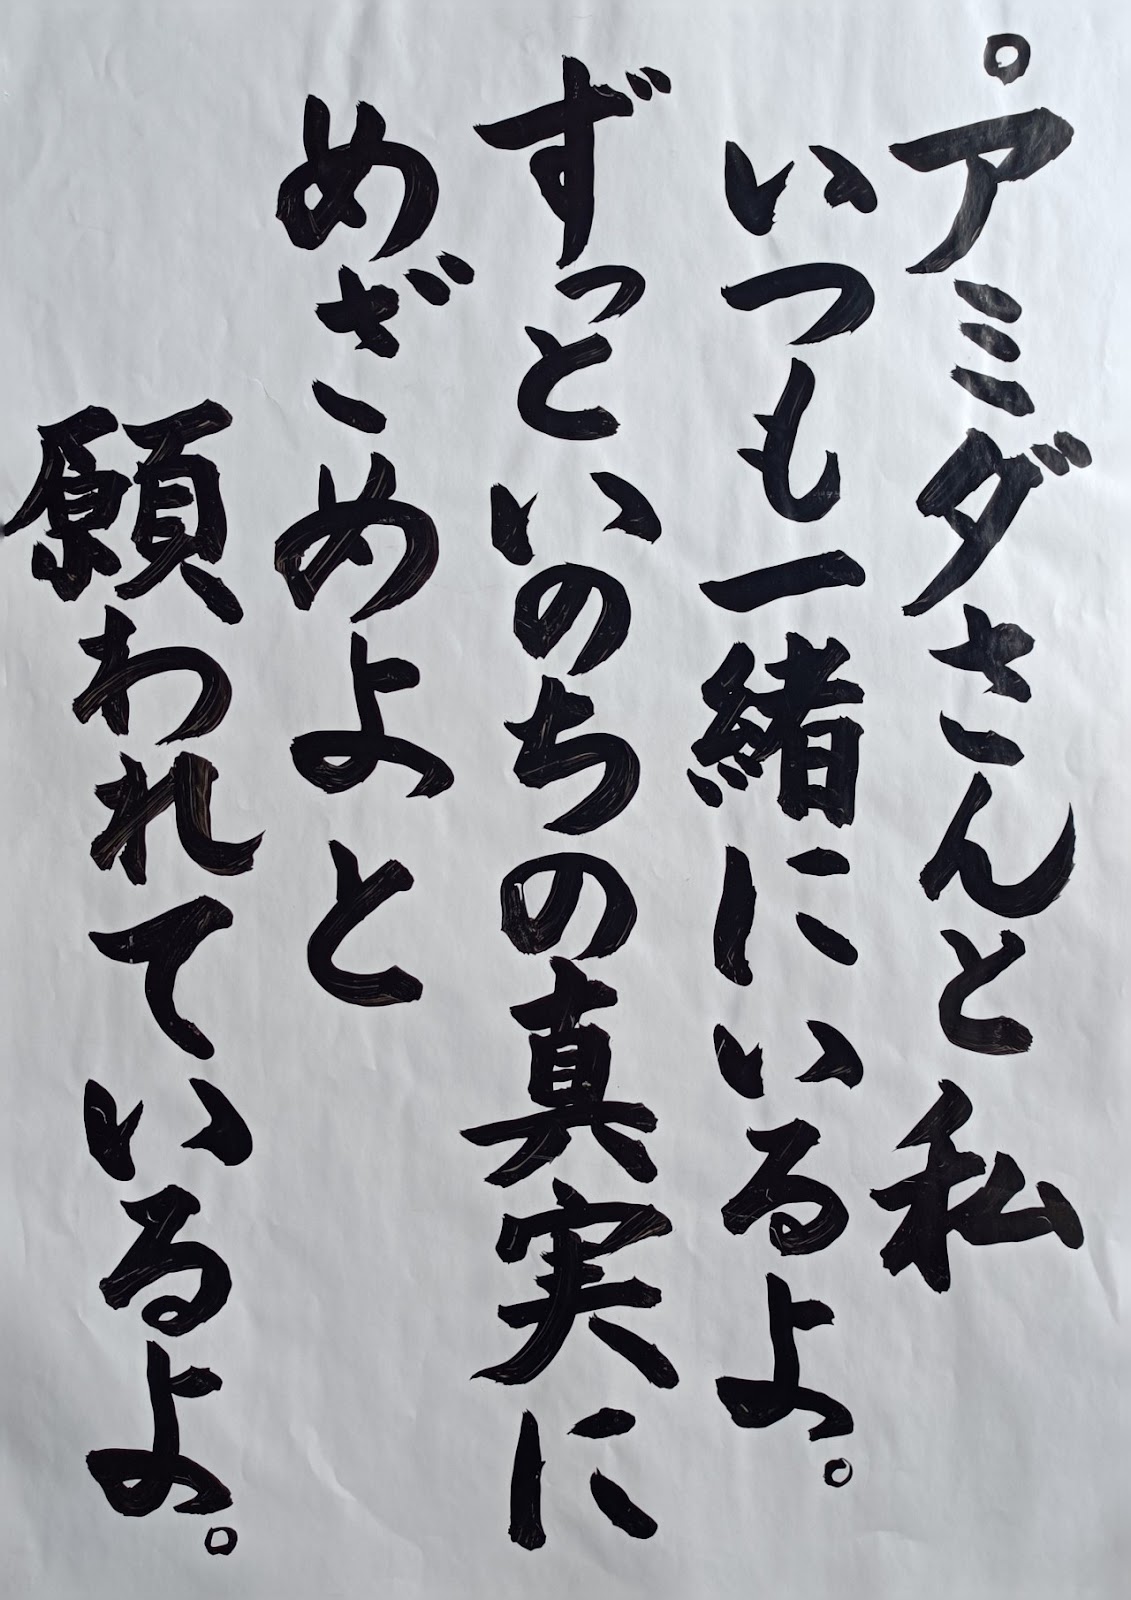 。アミダさんと私
いつも一緒にいるよ。
ずっといのちの真実に
めざめよと
願われているよ。